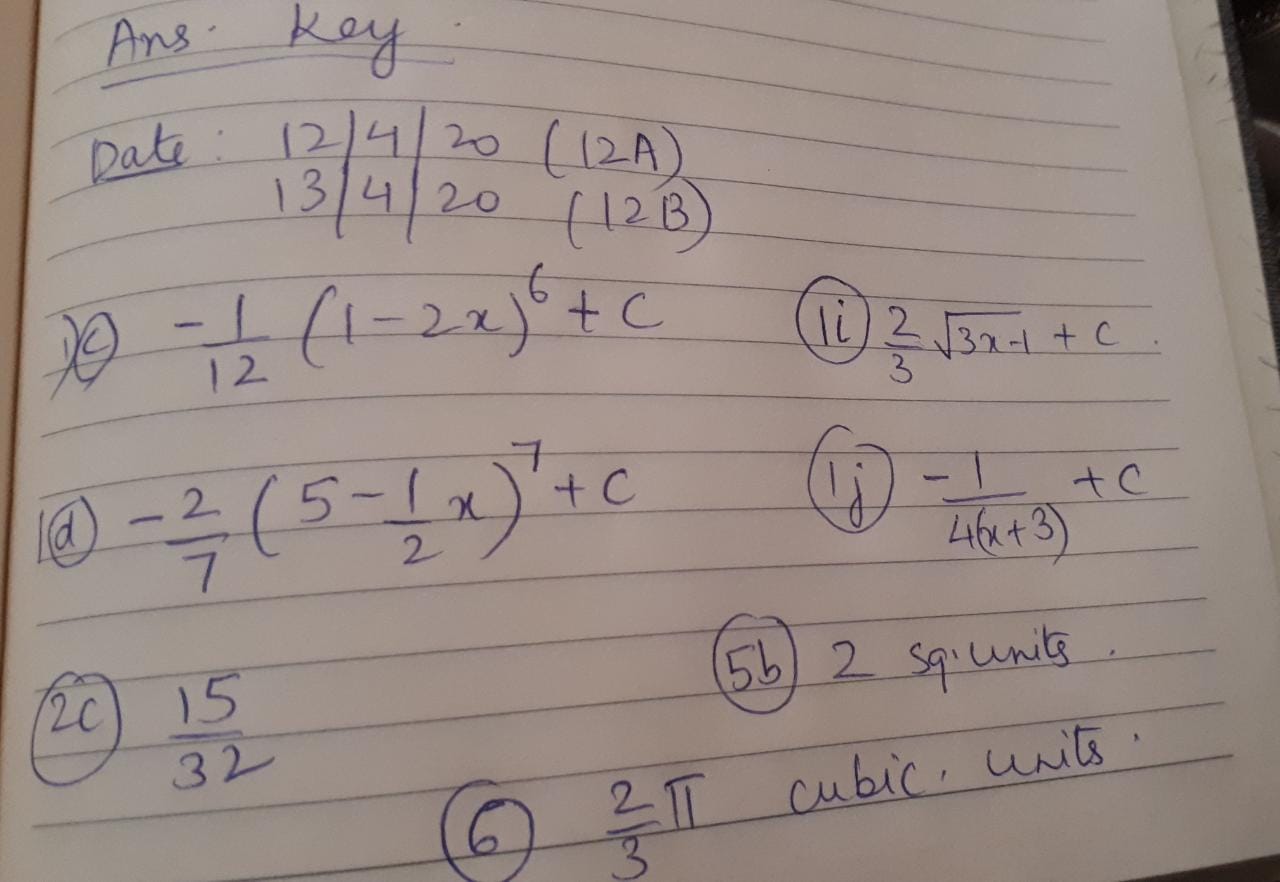 Ans. Key.
Date: 12/4/20 (12A)
13/4/20 (12B)
1) c) -1/12 (1-2x)^6 + C
1i) 2/3 √3x-1 + C.
1d) -2/7 (5-1/2 x)^7 + C
1j) -1/4(x+3) + C
2c) 15/32
5b) 2 sq. units.
6) 2/3 π cubic. units.